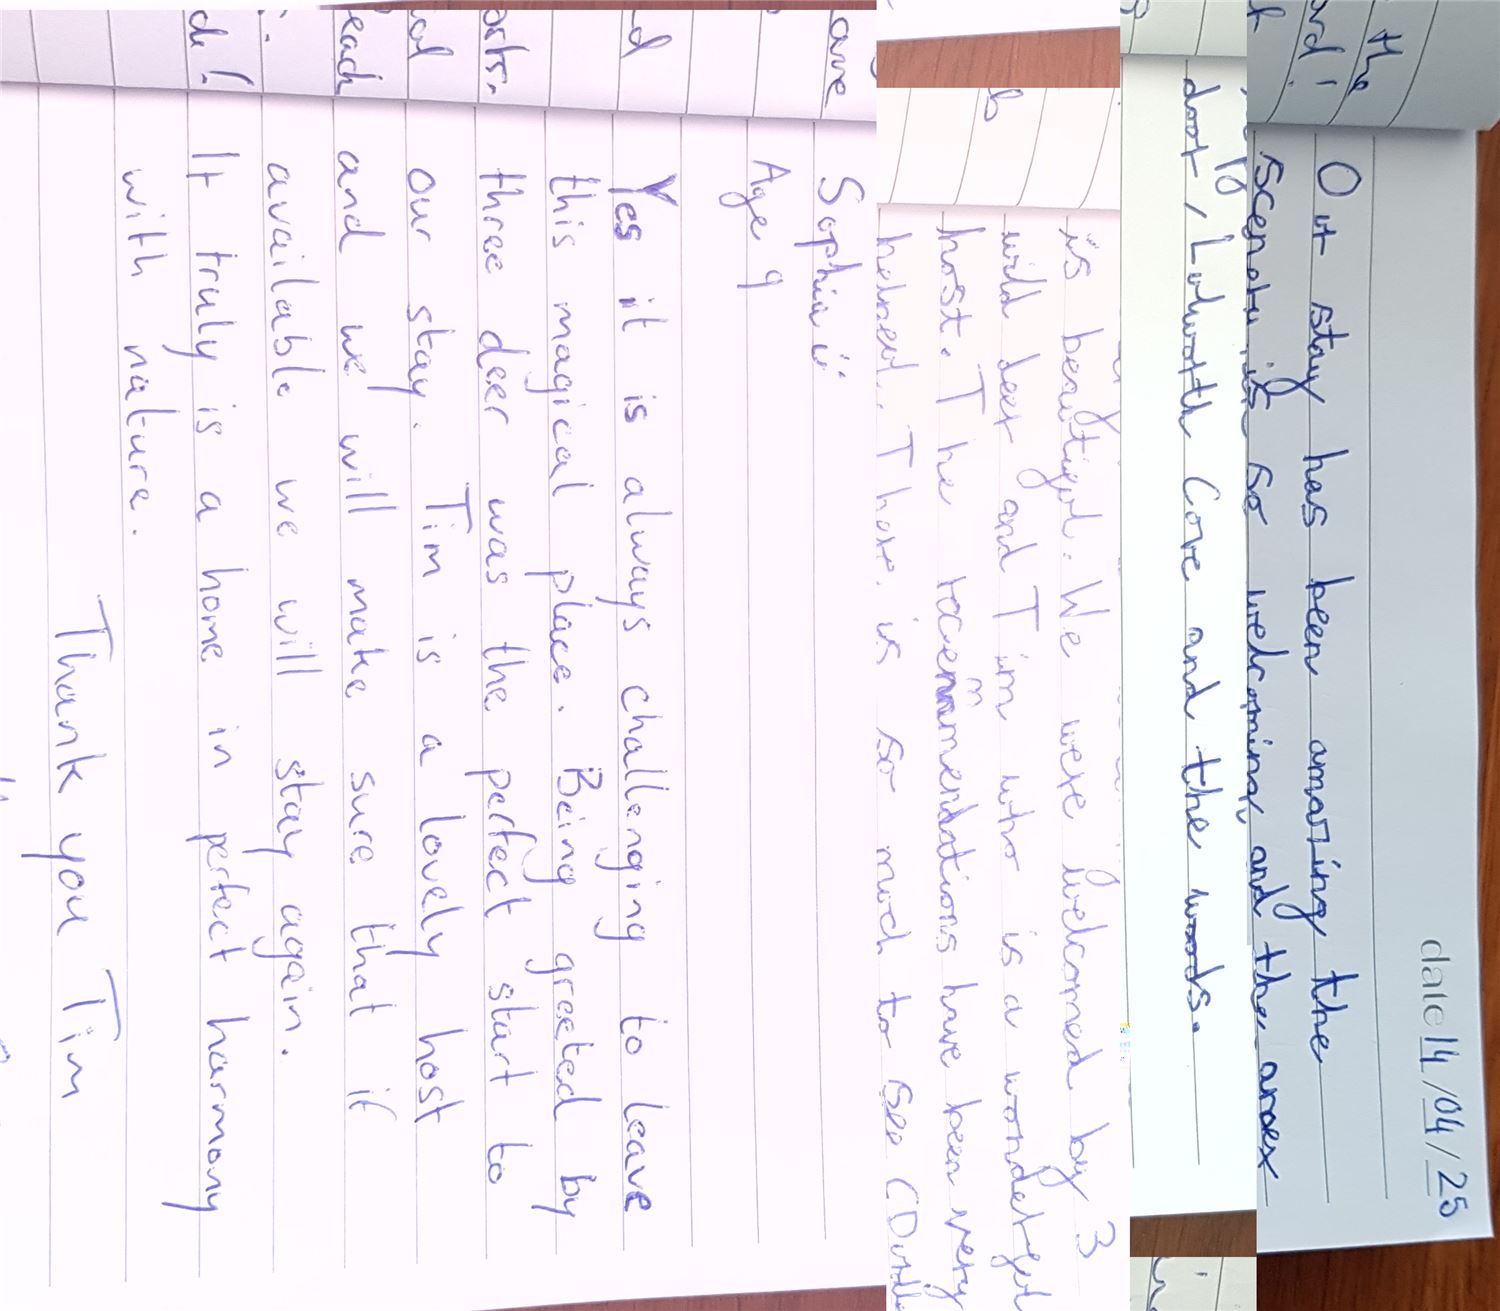 date 14/04/25
Our stay has been amazing the
scenery is so welcoming and the area
is beautiful. We were welcomed by 3
wild deer and Tim who is a wonderful
host. The recommendations have been very
helpful. There is so much to see (Durdle
door, Lulworth Cove and the woods.
Sophia ü
Age 9
Yes it is always challenging to leave
this magical place. Being greeted by
three deer was the perfect start to
our stay. Tim is a lovely host
and we will make sure that if
available we will stay again.
It truly is a home in perfect harmony
with nature.
Thank you Tim